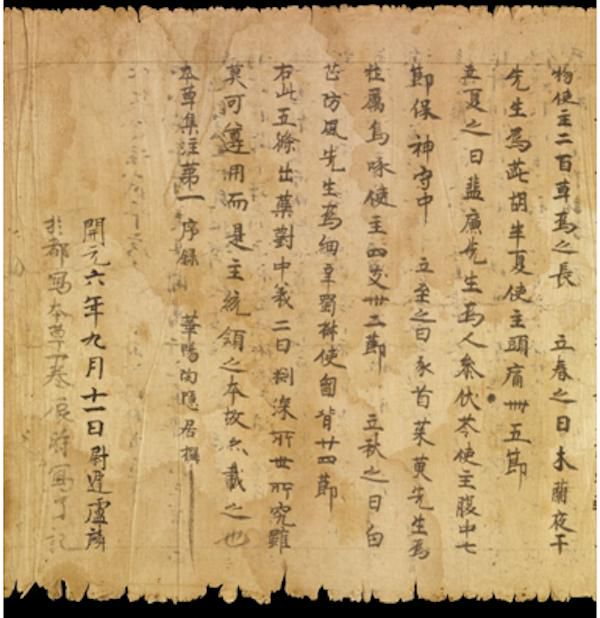 物使主二百草為之長 立春之日木蘭夜干
先生為茈胡半夏使主頭痛卌五節
立夏之日蜚廉先生為人參伏苓使主腹中七
節保神守中 立至之日豕首茱萸先生為
牡厲烏喙使主四支卅二節 立秋之日白
芷防風先生為細辛蜀椒使匈背廿四節
右此五條出藥對中義二曰深所世所究雖
莫可遵用而是主統領之本故亦載之也
本草集注第一 序錄 華陽陶隱居撰
開元六年九月十一日尉遲盧麟
於都寫本草一卷辰時寫了記